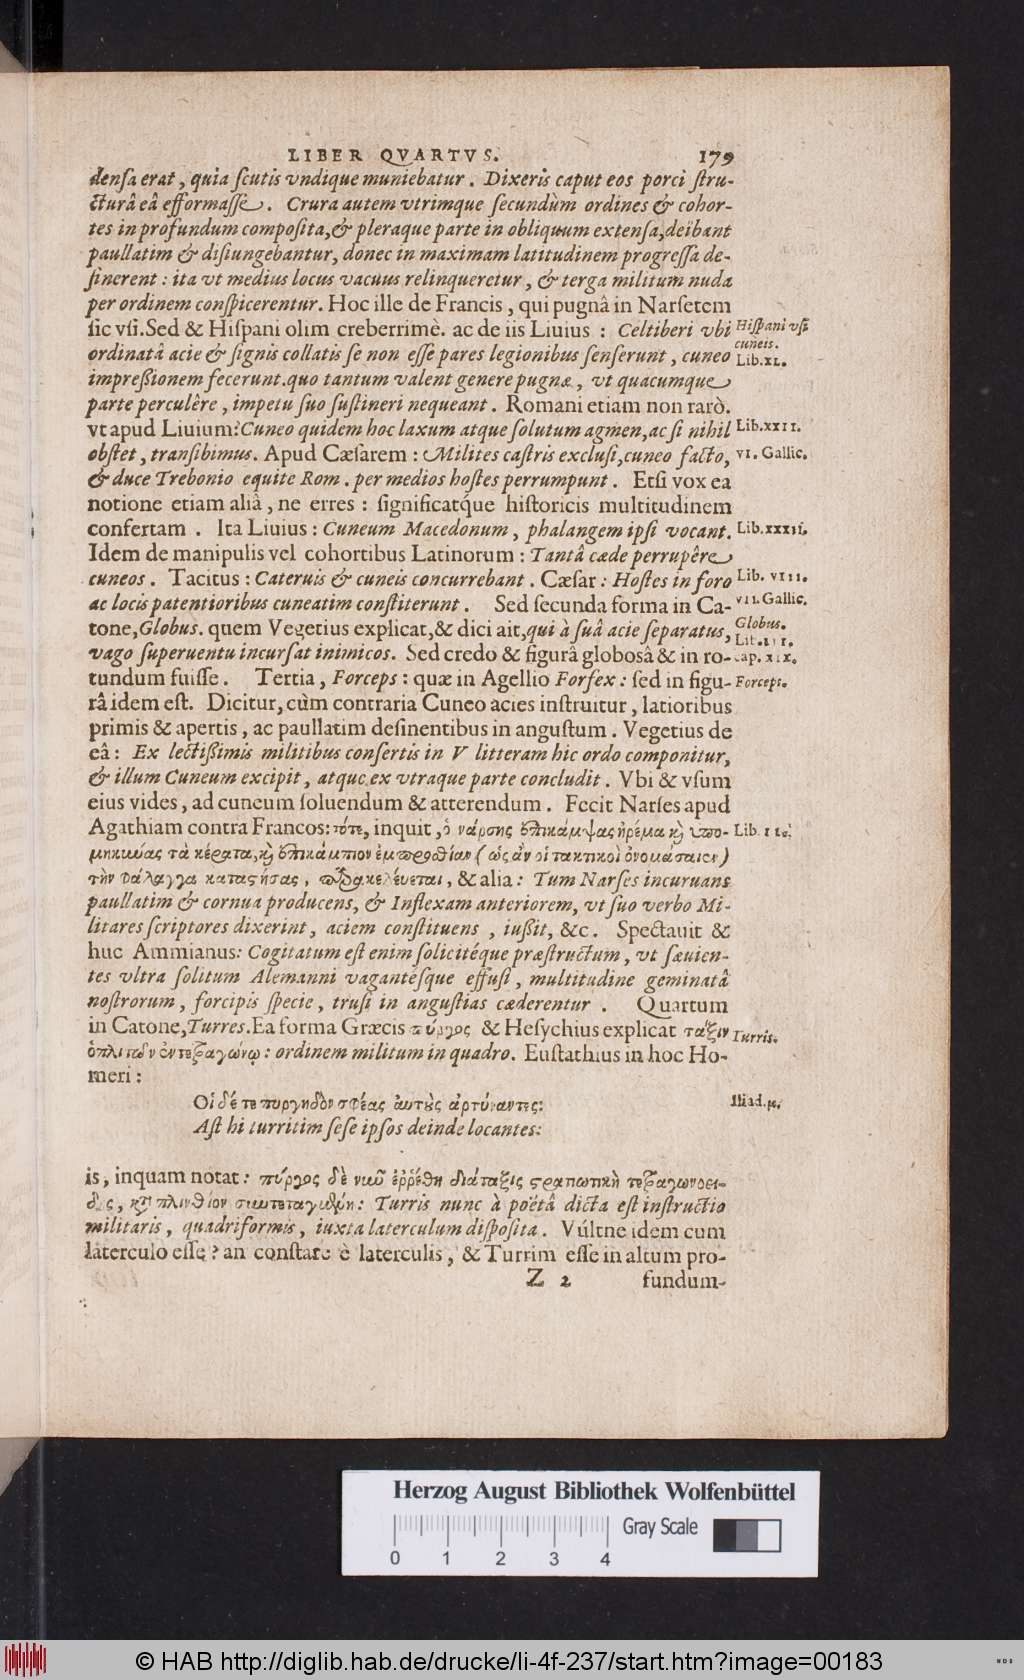 LIBER QVARTVS. 179
densa erat, quia scutis vndique muniebatur. Dixeris caput eos porci stru-
cturâ eâ efformasse. Crura autem vtrimque secundùm ordines & cohor-
tes in profundum composita, & pleraque parte in obliquum extensa, deïbant
paullatim & disiungebantur, donec in maximam latitudinem progressa de-
sinerent: ita vt medius locus vacuus relinqueretur, & terga militum nuda
per ordinem conspicerentur. Hoc ille de Francis, qui pugnâ in Narsetem
sic vsi. Sed & Hispani olim creberrimè. ac de iis Liuius: Celtiberi vbi
Hispani vsi cuneis.
ordinatâ acie & signis collatis se non esse pares legionibus senserunt, cuneo
Lib. XL.
impreßionem fecerunt. quo tantum valent genere pugnæ, vt quacumque
parte perculêre, impetu suo sustineri nequeant. Romani etiam non rarò.
vt apud Liuium: Cuneo quidem hoc laxum atque solutum agmen, ac si nihil
Lib. XXII.
obstet, transibimus. Apud Cæsarem: Milites castris exclusi, cuneo facto,
VI. Gallic.
& duce Trebonio equite Rom. per medios hostes perrumpunt. Etsi vox ea
notione etiam aliâ, ne erres: significatq́ue historicis multitudinem
confertam. Ita Liuius: Cuneum Macedonum, phalangem ipsi vocant.
Lib. XXXII.
Idem de manipulis vel cohortibus Latinorum: Tantâ cæde perrupêre
cuneos. Tacitus: Cateruis & cuneis concurrebant. Cæsar: Hostes in foro
Lib. VIII.
ac locis patentioribus cuneatim constiterunt. Sed secunda forma in Ca-
VII. Gallic.
tone, Globus. quem Vegetius explicat, & dici ait, qui à suâ acie separatus,
Globus. Lib. III.
vago superuentu incursat inimicos. Sed credo & figurâ globosâ & in ro-
cap. XIX.
tundum fuisse. Tertia, Forceps: quæ in Agellio Forfex: sed in figu-
Forceps.
râ idem est. Dicitur, cùm contraria Cuneo acies instruitur, latioribus
primis & apertis, ac paullatim desinentibus in angustum. Vegetius de
eâ: Ex lectißimis militibus consertis in V litteram hic ordo componitur,
& illum Cuneum excipit, atque ex vtraque parte concludit. Vbi & vsum
eius vides, ad cuneum soluendum & atterendum. Fecit Narses apud
Agathiam contra Francos: τότε, inquit, ὁ νάρσης ἐπικάμψας ἠρέμα καὶ ὑπο-
Lib. II.
μηκύνας τὰ κέρατα, καὶ ἐπικάμπιον ἐμπροσθίαν (ὡς ἂν οἱ τακτικοὶ ὀνομάσαιεν)
τὴν φάλαγγα καταστήσας, παρακελεύεται, & alia: Tum Narses incuruans
paullatim & cornua producens, & Inflexam anteriorem, vt suo verbo Mi-
litares scriptores dixerint, aciem constituens, iußit, &c. Spectauit &
huc Ammianus: Cogitatum est enim solicitéque præstructum, vt sæuien-
tes vltra solitum Alemanni vagantésque effusi, multitudine geminatâ
nostrorum, forcipis specie, trusi in angustias cæderentur. Quartum
in Catone, Turres. Ea forma Græcis πύργος & Hesychius explicat τάξιν
Turris.
ὁπλιτῶν ἐν τετραγώνῳ: ordinem militum in quadro. Eustathius in hoc Ho-
meri:
Οἱ δέ τε πυργηδὸν σφέας αὐτοὺς ἀρτύναντες:
Iliad. μ.
Ast hi turritim sese ipsos deinde locantes:
is, inquam notat: πύργος δὲ νῦν ἐῤῥέθη διάταξις στρατιωτικὴ τετραγωνοει-
δὴς, κατὰ πλινθίον συντεταγμένη: Turris nunc à poëtâ dicta est instructio
militaris, quadriformis, iuxta laterculum disposita. Vúltne idem cum
laterculo esse? an constare è laterculis, & Turrim esse in altum pro-
Z 2 fundum-
Herzog August Bibliothek Wolfenbüttel
Gray Scale
0 1 2 3 4
© HAB http://diglib.hab.de/drucke/li-4f-237/start.htm?image=00183